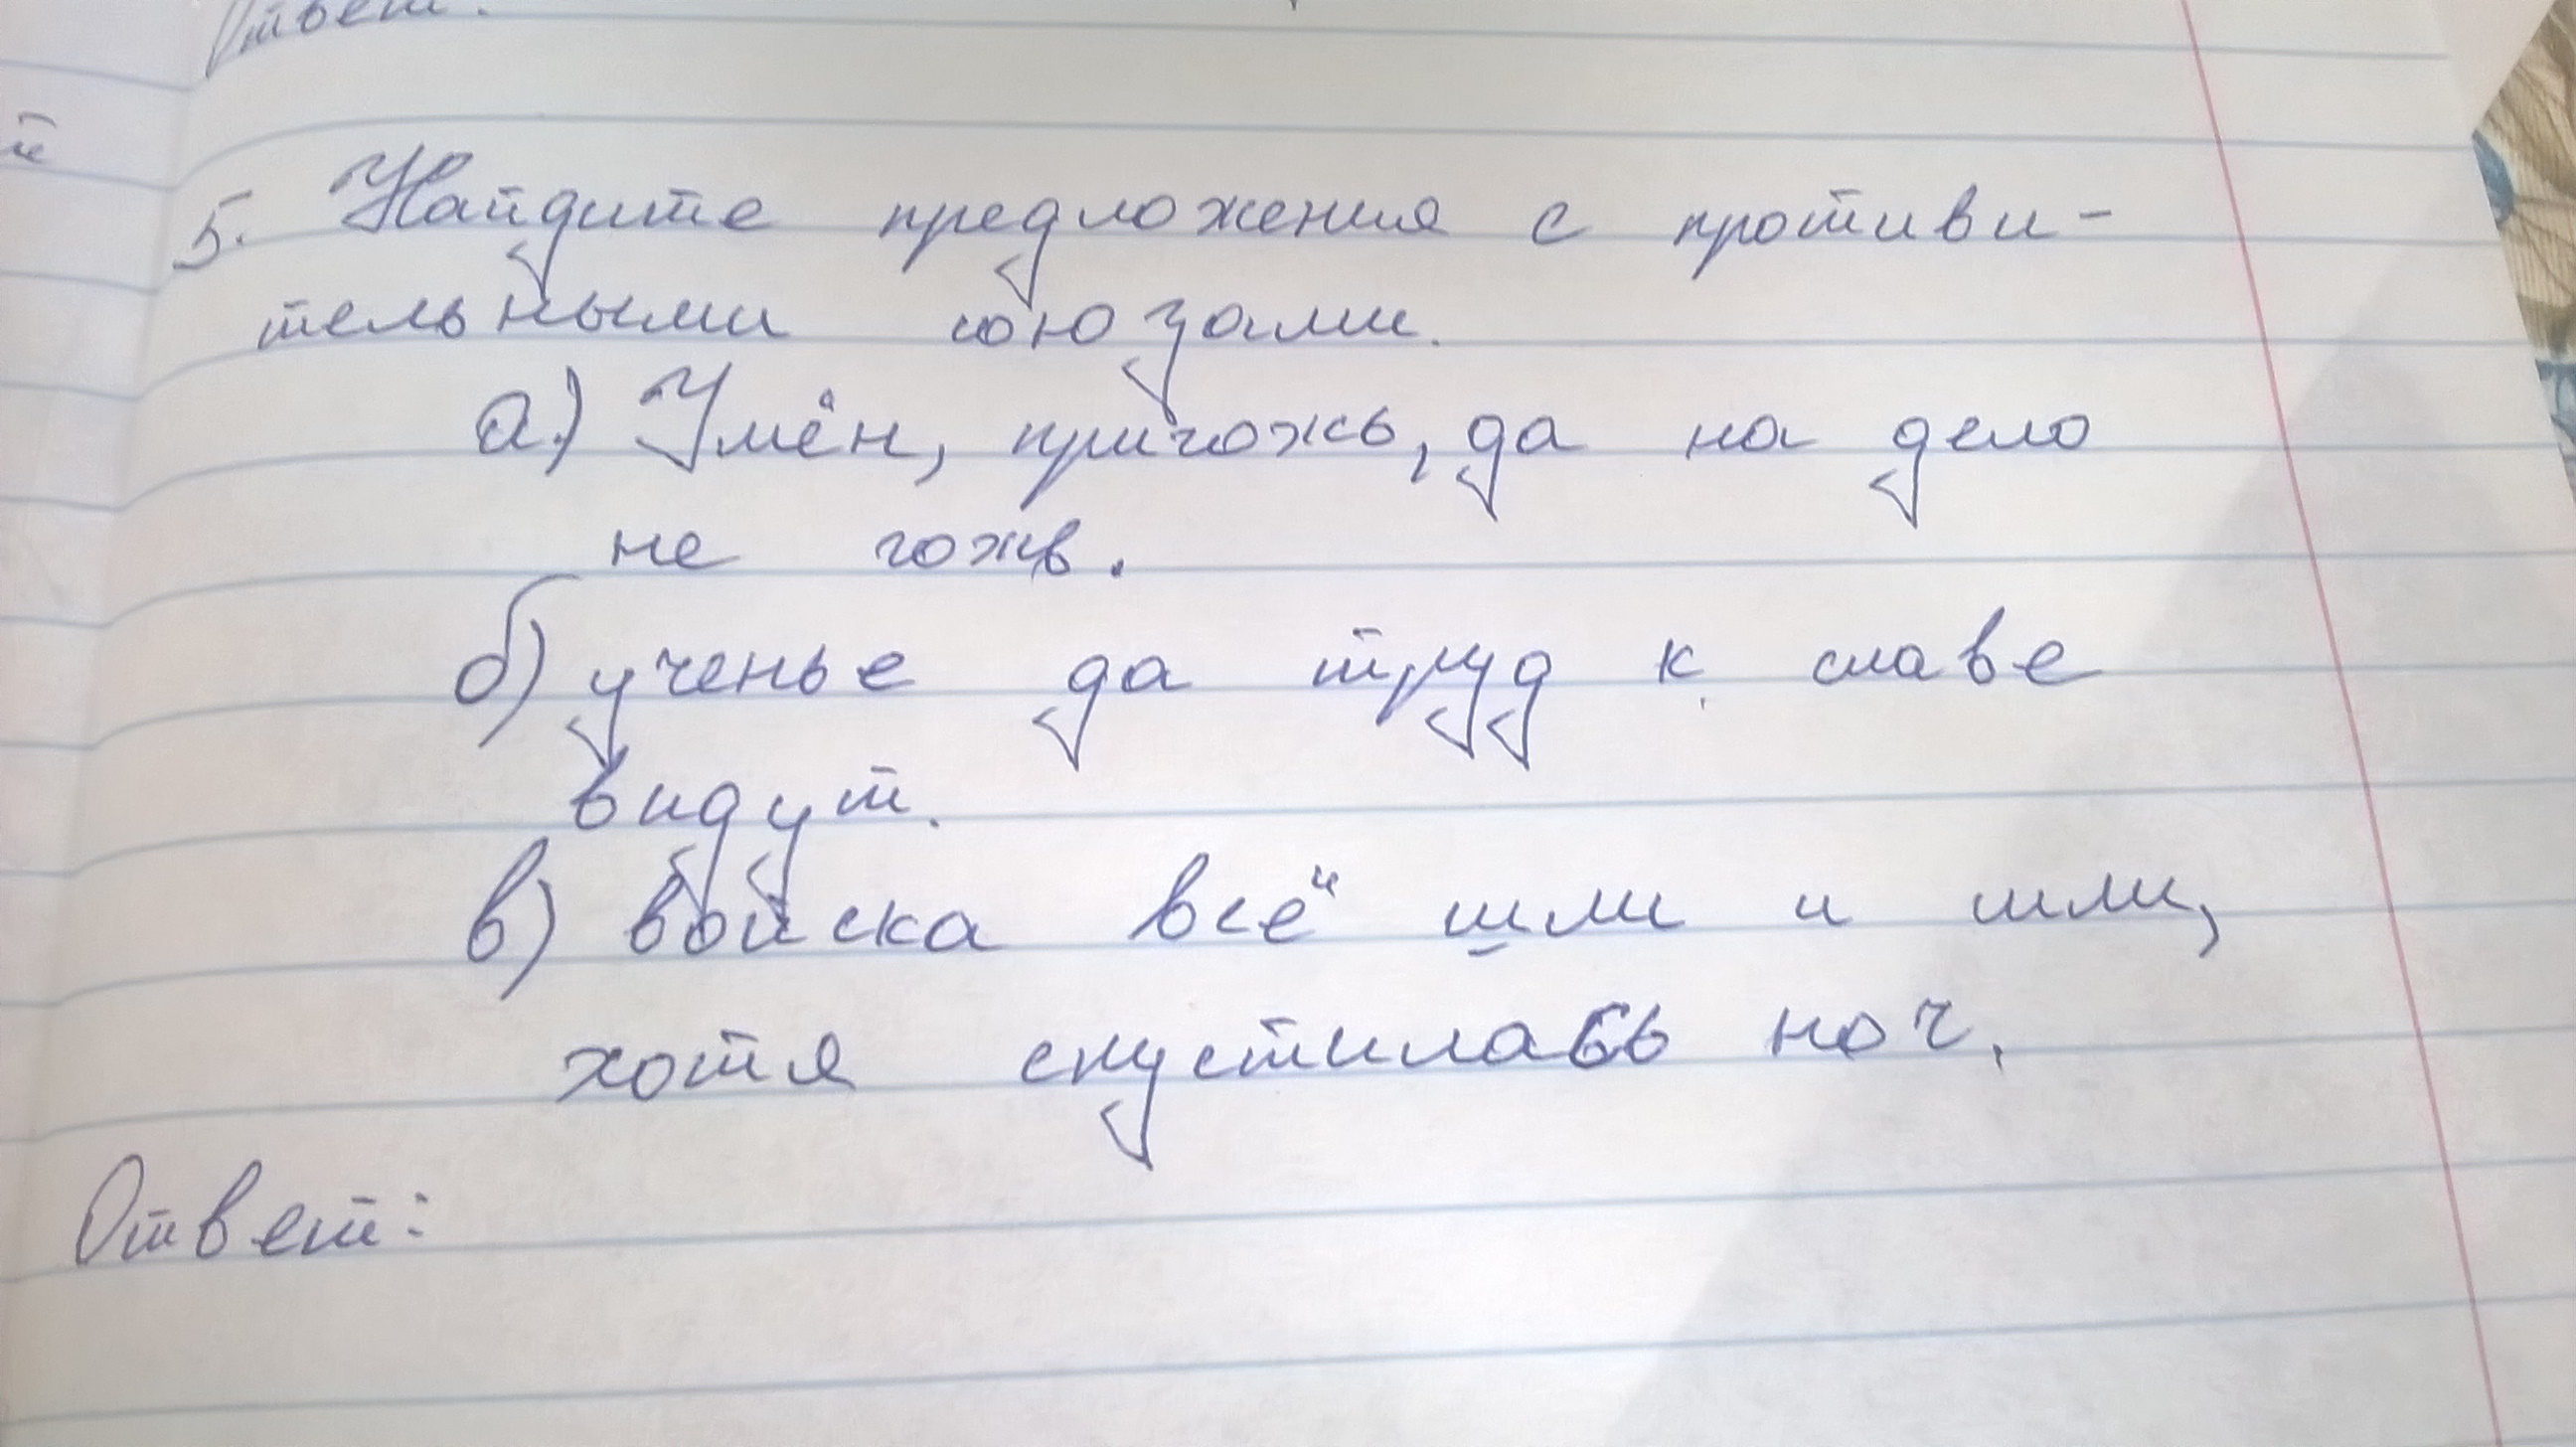 Ответ.
й
5. Найдите предложения с противи-
тельными союзами.
а) Умён, пригожь, да на дело
не гожь.
б) ученье да труд к славе
видут.
в) войска всё шли и шли,
хотя спустилась ноч.
Ответ: